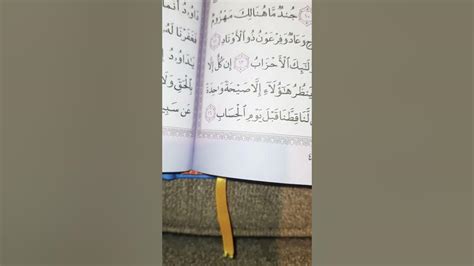 جُندٌ مَّا هُنَالِكَ مَهْزُومٌ
وَعَادٌ وَفِرْعَوْنُ ذُو ٱلْأَوْتَادِ ١٢
ٱلْأَحْزَابُ ١٣ إِن كُلٌّ إِلَّا
يَنظُرُ هَٰٓؤُلَآءِ إِلَّا صَيْحَةً وَٰحِدَةً
لَّنَا قِطَّنَا قَبْلَ يَوْمِ ٱلْحِسَابِ ١٦
دَاوُۥدُ أَنَّمَا
فَغَفَرْنَا لَهُۥ
يَٰدَاوُۥدُ
بِٱلْحَقِّ وَلَا
عَن